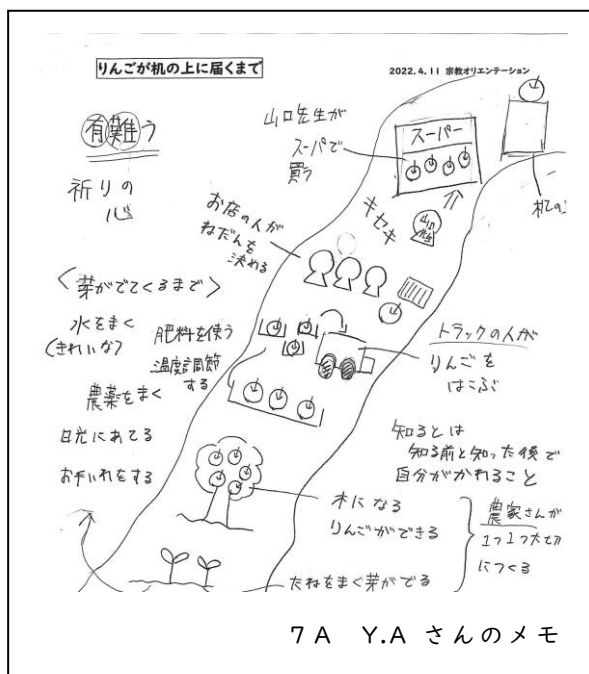 りんごが机の上に届くまで
2022.4.11 宗教オリエンテーション
有難う
祈りの
心
山口先生が
スーパで
買う
スーパー
机の
キセキ
山口先生
お店の人が
ねだんを
決める
<芽がでてくるまで>
水をまく
(きれいな)
肥料を使う
温度調節
する
農薬をまく
日光にあてる
お手いれをする
トラックの人が
りんごを
はこぶ
知るとは
知る前と知った後で
自分がかわること
木になる
りんごができる
たねをまく芽がでる
農家さんが
1つ1つ大切
につくる
7A Y.A さんのメモ